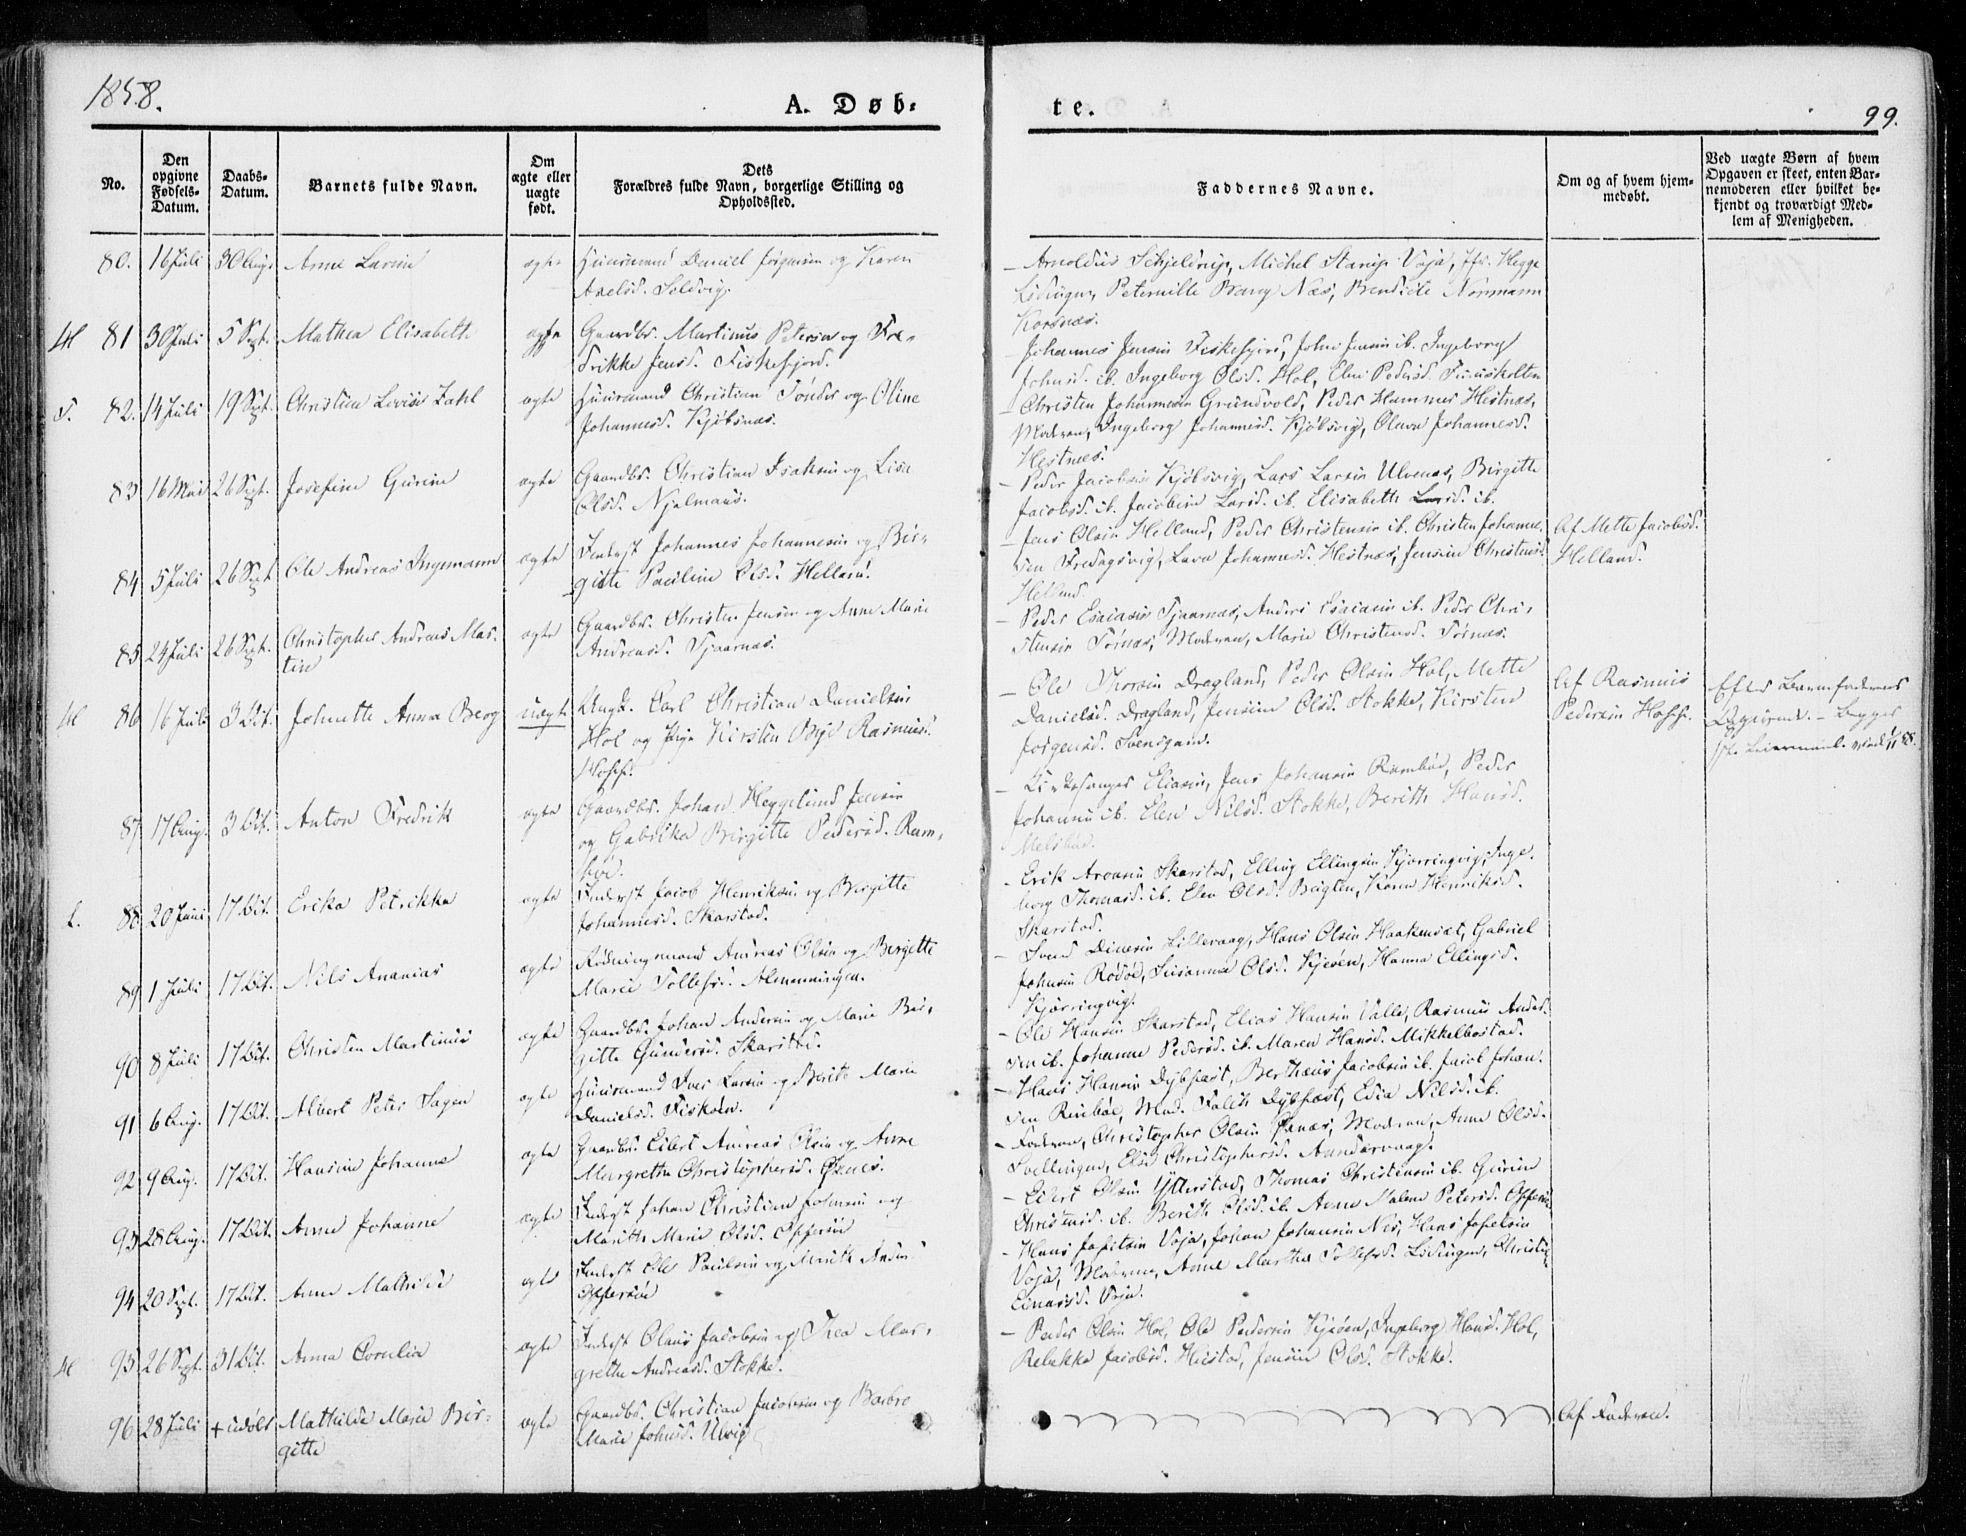 1858.
A. Døb-
te.
99.
No.
Den opgivne Fødsels-Datum.
Daabs-Datum.
Barnets fulde Navn.
Om ægte eller uægte født.
Dets Forældres fulde Navn, borgerlige Stilling og Opholdssted.
Faddernes Navne.
Om og af hvem hjem-medøbt.
Ved uægte Børn af hvem
Opgaven er skeet, enten Bar-
nemoderen eller hvilket be-
kjendt og troværdigt Med-
lem af Menigheden.
80. 16 Juli 30 Aug. Anne Lavine ægte Huusmand Daniel Jørgensen og Karen
Axelsd. Soldvig.
Arnoldus Schjeldrup, Michel Starup Voja,
Lødingen, Peternille Næs, Normann
Korsnæs.
81 30 Juli 5 Sept. Mathea Elisabeth ægte Gaardbr. Martinus Peterson og Fre-
drikke Jensd. Fiskefjord.
Johannes Jensen Fiskefjord, John Jensen ib. Ingeborg
Johnsd. ib. Ingeborg Olsd. Hol, Elen Pedersd.
82. 14 Juli 19 Sept. Christine Lovise Zahl ægte Huusmand Christian Tønder og Oline
Johannesd. Kjøbsnæs.
- Christen Johannesen Grundvold, Peder Hammer Hestnæs,
Moderen, Ingeborg Johannesd. Kjøbsvig, Olava Johannesd.
Hestnæs.
83 16 Mai 26 Sept. Josefine Gurine ægte Gaardbr. Christian Isaksen og Lisa
Olsd. Njalmaas.
- Peder Jacobsen Kjøbsvig, Lars Larsen Ulvenæs, Birgitte
Jacobsd. ib. Jacobine Larsd. ib. Elisabeth Larsd. ib.
84 5 Juli 26 Sept Ole Andreas Ingemann ægte Inderst Johannes Johannesen og Bir-
gitte Pauline Olsd. Helland.
- Jens Olsen Helland, Peder Christensen ib. Christen Johanne-
sen Fredagsvig, Lava Johannesd. Hestnæs, Jensine Christensd.
Helland.
Af Mette Jacobsd.
Helland.
85 24 Juli 26 Sept. Christopher Andreas Mar-
tin
ægte Gaardbr. Christen Jensen og Anne Marie
Andreasd. Tjaarnæs.
- Peder Esaiasen Tjaarnæs, Anders Esaiasen ib. Peder Chri-
stensen Tørnæs, Moderen, Marie Christensd. Tørnæs.
86 16 Juli 3 Oct. Johnette Anna Berg uægte Ungk. Carl Christian Danielsen
Hol og Pige Kirsten Rasmusd.
- Ole Thorsen Dragland, Peder Olsen Hol, Mette
Danielsd. Dragland, Jensine Olsd. Stokke, Kirsten
Jørgensd. Svensgam.
Af Rasmus
Pedersen
Efter Barnefaderens
Opgivende. - Begges
87. 17 Aug. 3 Oct. Anton Fredrik ægte Gaardbr. Johan Heggelund Jensen
og Gabrikka Birgitte Pedersd. Ram-
bød.
Eliasen, Jens Johansen Rambød, Peder
Johansen ib. Elen Nilsd. Stokke, Berith Hansd.
88. 20 Juni 17 Oct. Erika Petrikka ægte Inderst Jacob Henriksen og Birgitte
Johannesd. Skarstad.
- Erik Aronsen Skarstad, Elling Ellingsen Kjørringvig, Inge-
borg Thomasd. ib. Elen Olsd. Karen Henriksd.
Skarstad.
89 1 Juli 17 Oct. Nils Ananias ægte Rødningsmand Andreas Olsen og Bergette
Marie Tollefsd. Almenningen.
- Svend Dinesen Lillevaag, Hans Olsen Haakenset, Gabriel
Johnsen Rødøe, Susanna Olsd. Kjeøen, Hanna Ellingsd.
Kjørringvig.
90 8 Juli 17 Oct. Christen Martinus ægte Gaardbr. Johan Andersen og Marie Bir-
gitte Gundersd. Skarstad.
- Ole Hansen Skarstad, Elias Hansen Valle, Rasmus Ander-
sen ib. Johanne Pedersd. ib. Maren Hansd. Mikkelbostad.
91 6 Aug. 17 Oct. Albert Peter Sagen ægte Huusmand Iver Larsen og Berith Marie
Danielsd. Fiskøen.
- Hans Hansen Dybfest, Berthæus Jacobsen ib. Jacob Johan-
sen Rinbøe, Mad. Falch Dybfest, Edia Nilsd. ib.
92 9 Aug. 17 Oct. Hansine Johanne ægte Gaardbr. Eilert Andreas Olsen og Anne
Margrethe Christophersd. Øxnes.
- Faderen, Christopher Olsen Moderen, Anne Olsd.
Svellingen, Else Christophersd.
93 28 Aug. 17 Oct. Anne Johanne ægte Inderst Johan Christian Johnsen og
Marith Marie Olsd. Offersøe
- Eilert Olsen Ytterstad, Thomas Christensen ib. Gurine
Christensd. ib. Berith Olsd. ib. Anne Malene Petersd.
94 20 Sept. 17 Oct. Anne Mathilde ægte Inderst Ole Paulsen og Marith
Offersøe
- Hans Jafetsen Voja, Johan Johansen Næs, Hans Jafetsen
Voja, Moderen, Anne Martha Tollefsd. Lødingen,
Einarsd. Voja.
95 26 Sept. 31 Oct. Anna Cornelia ægte Inderst Olaus Jacobsen og Thea Mar-
grethe Andreasd. Stokke.
- Peder Olsen Hol, Ole Pedersen Kjeøen, Ingeborg Hansd. Hol,
Rebekka Jacobsd. Jensine Olsd. Stokke.
96 28 Juli + udøbt Mathilde Marie Bir-
gitte
ægte Gaardbr. Christian Jacobsen og Barbro
Marie Johnsd. Ulvig
Af Faderen.